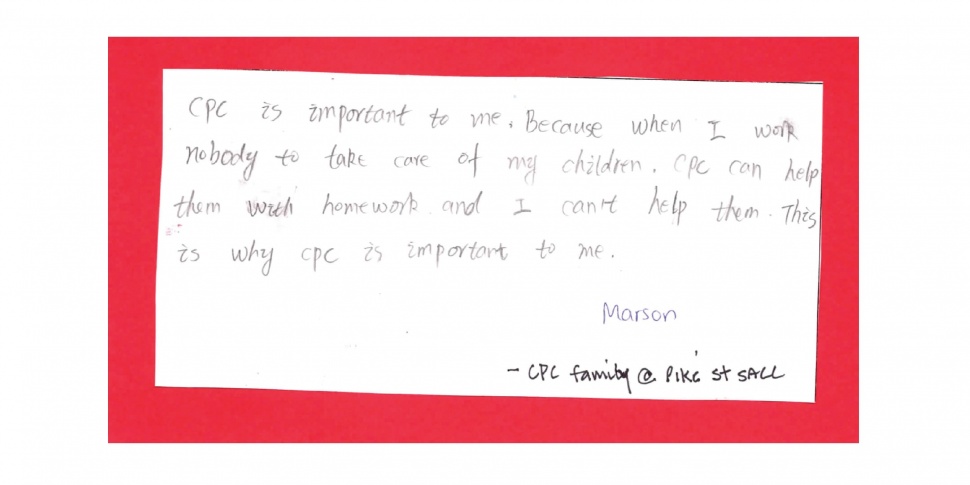 CPC is important to me. Because when I work
nobody to take care of my children. CPC can help
them with homework and I can't help them. This
is why cpc is important to me.
Marson
- CPC family @ PIKE St SALL